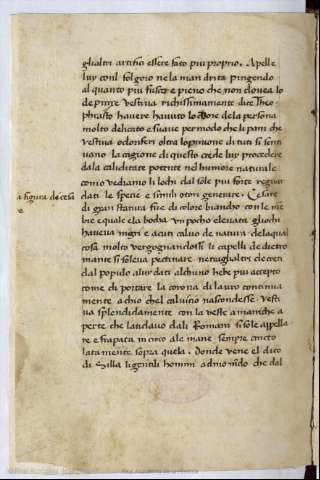 glialtri artifici essere fato piu proprio. Apelle
luy conl folgoro ne la man drita pingendo
al quanto piu fusco e pieno che non dovea lo
depinxe vestiva richissimamente dice Theo
phrasto havere havuto lo odore dela persona
molto delicato e suave per modo che li pani che
vestiva odoriferi oltra lopinione di tuti si senti
vano la cagione di questo crede luy procedere
dala caliditate potente nel humore naturale
como vediamo li lochi dal sole piu forte regiar
dati le specie e simili odori generare. Cesare
a figura de cesa
re
di gran statura fue di colore biancho con le mē
bre equale e la bocha un pocho elevata gliochi
haveva nigri e acuti calvo de natura. dela qual
cosa molto vergognandossi li capelli de dietro
mante si soleva pectinare ne
dal popolo a luy dati alchuno hebe piu accepto
come di portare la corona di lauro continua
mente a cio chel calvicio nascondesse. Vesti
va splendidamente con la veste a maniche a
perte che laticlavo dali Romani si sole appella
re e frapata in circo ale mane sempre cincto
latamente sopra quela. Donde vene el dicto
di Silla li gentili homini admonēdo che dal